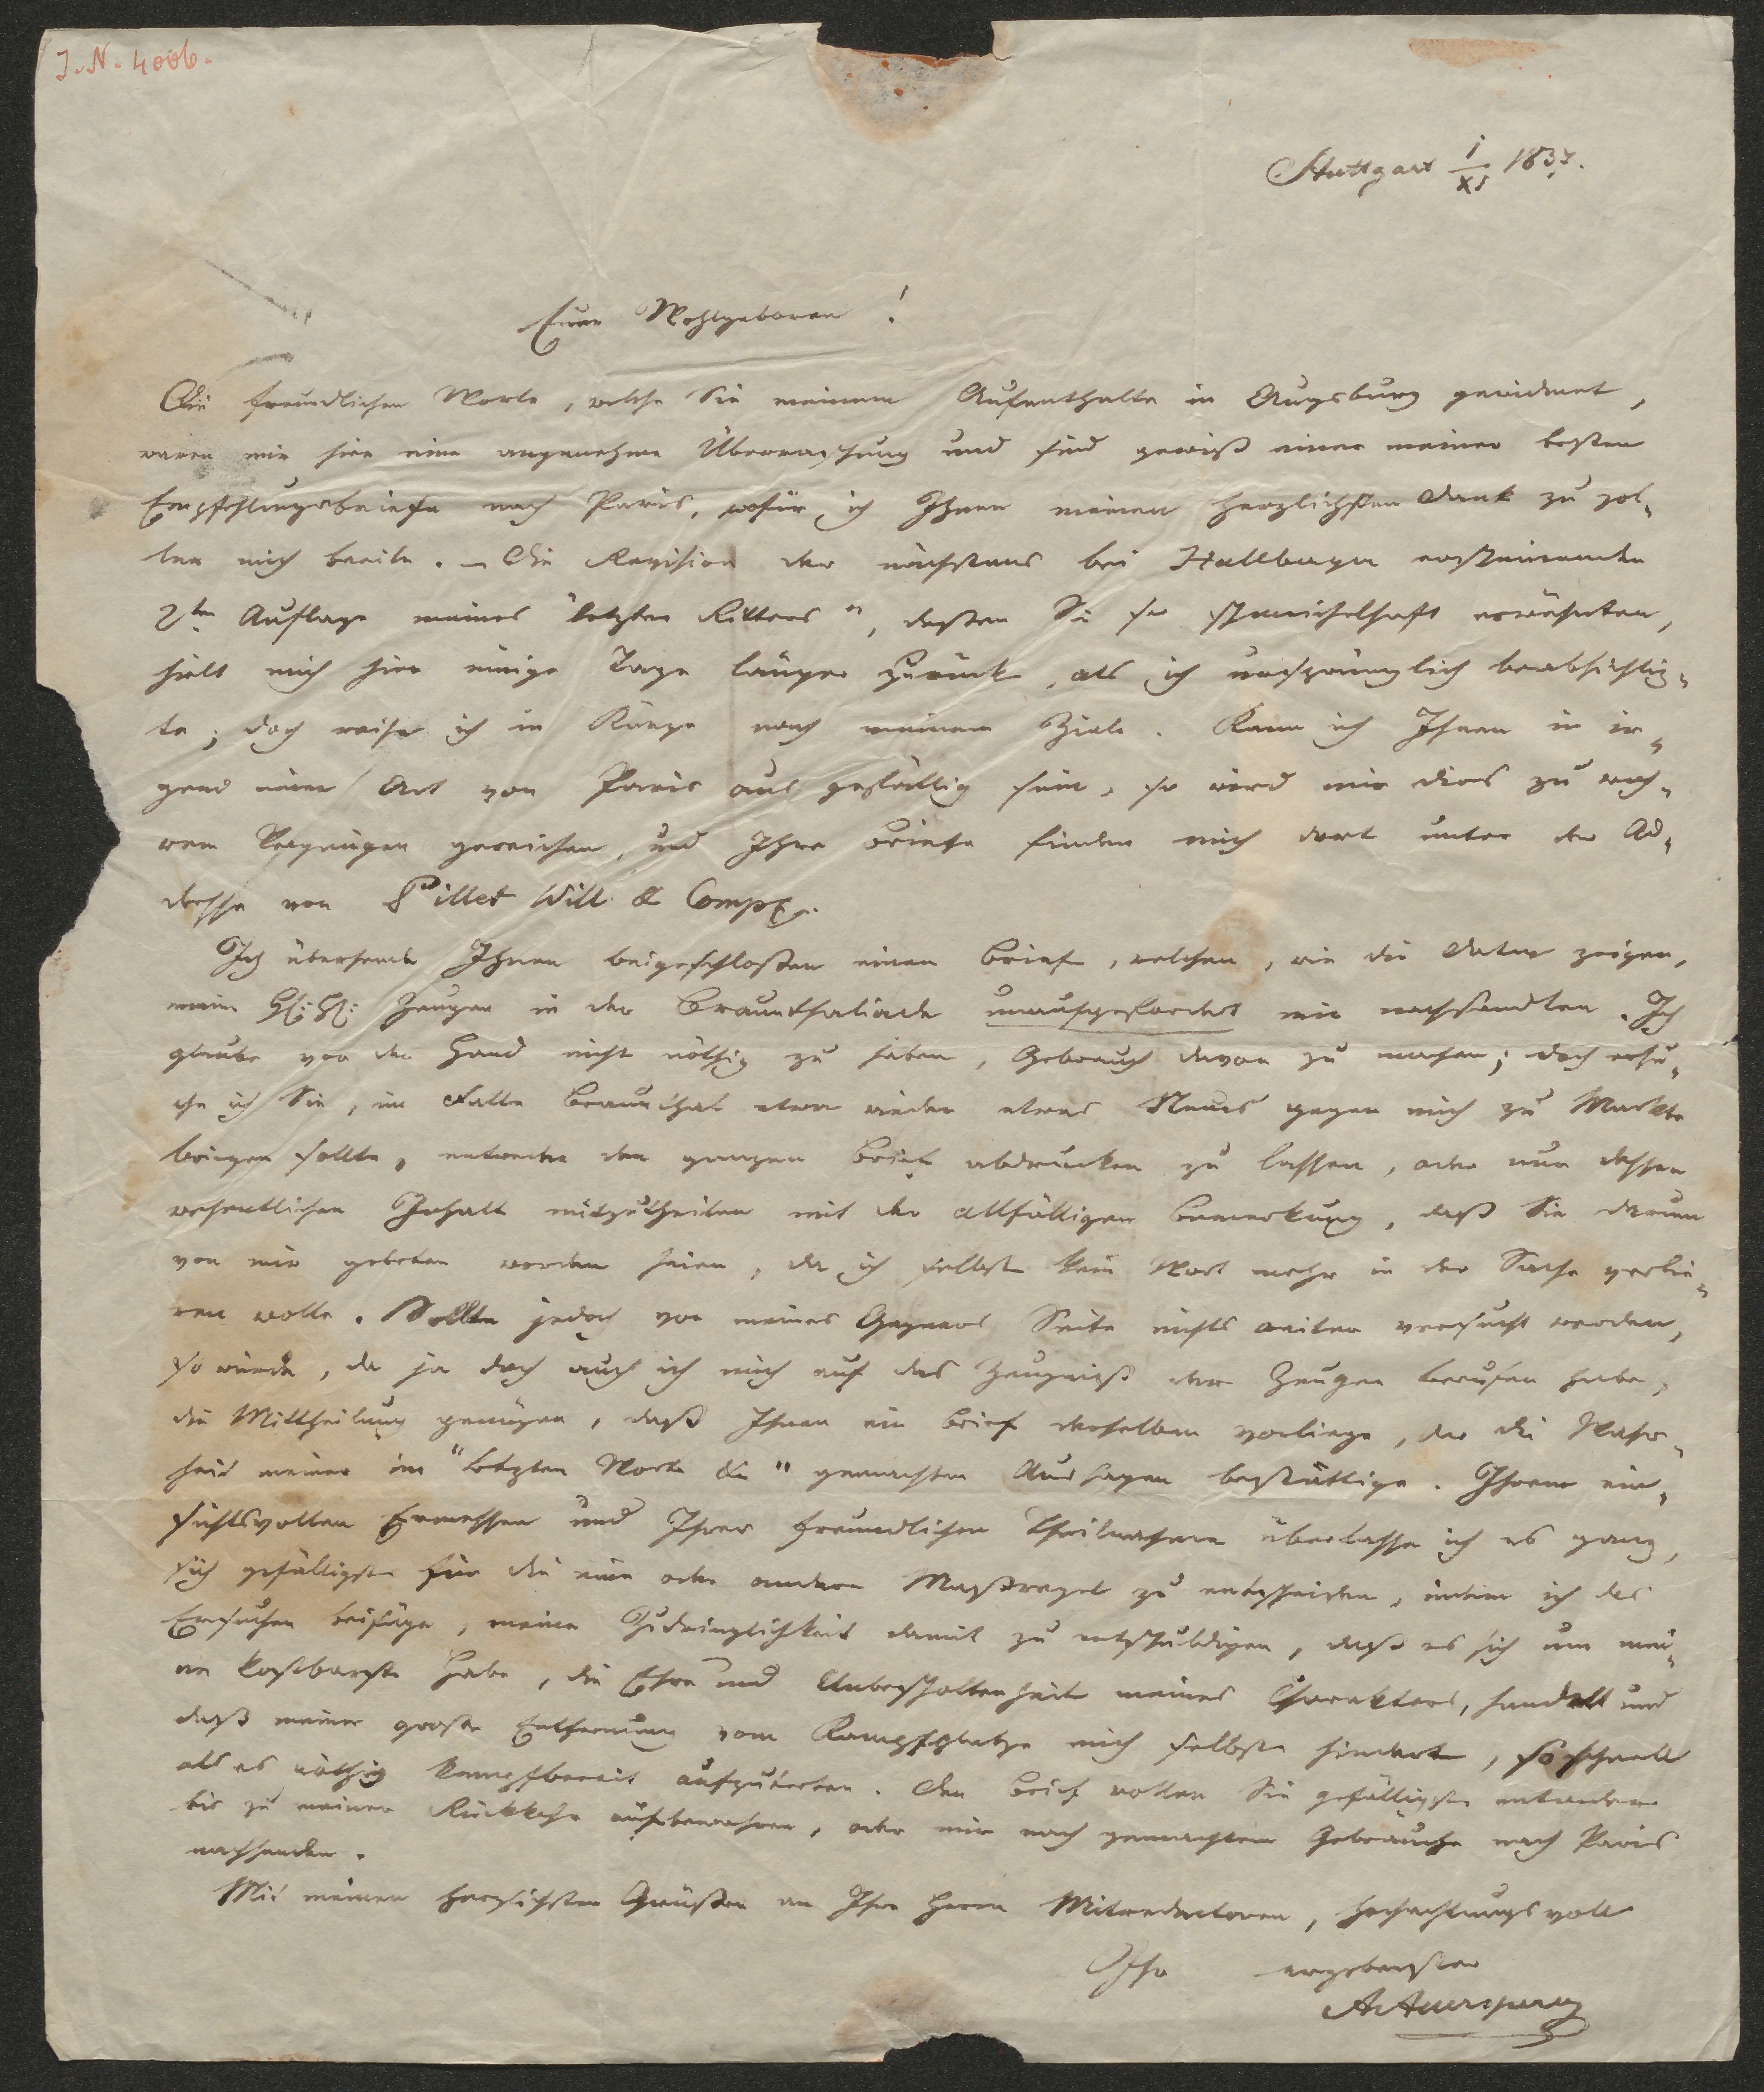 J. N. 4006.
Stuttgart 1/XI 1837.
Euer Wohlgeboren!
Die freundlichen Worte, welche Sie meinem Aufenthalte in Augsburg gewidmet,
waren mir hier eine angenehme Überraschung und sind gewiß einer meiner besten
Empfehlungsbriefe nach Paris, wofür ich Ihnen meinen herzlichsten Dank zu zol-
len mich beeile. – Die Revision der nächstens bei Hallberger erscheinenden
2ten Auflage meines "letzten Ritters", dessen Sie so schmeichelhaft erwähnten,
hielt mich hier einige Tage länger zurück, als ich ursprünglich beabsichtig-
te; doch reise ich in Kürze nach meinem Ziele. Kann ich Ihnen in ir-
gend einer Art von Paris aus gefällig sein, so wird mir dies zu wah-
rem Vergnügen gereichen, und Ihre Briefe finden mich dort unter der Ad-
dresse von Pillet Will & Comp.
Ich übersende Ihnen beigeschloßen einen Brief, welchen, wie die Data zeigen,
meine HH: HH: Zeugen in der Braunthaliade unaufgefordert mir nachsandten. Ich
glaube vor der Hand nicht nöthig zu haben, Gebrauch davon zu machen; doch ersu-
che ich Sie, im Falle Braunthal etwa wieder etwas Neues gegen mich zu Markte
bringen sollte, entweder den ganzen Brief abdrucken zu lassen, oder nur dessen
wesentlichen Inhalt mitzutheilen mit der allfälligen Bemerkung, daß Sie darum
von mir gebeten worden seien, da ich selbst kein Wort mehr in der Sache verlie-
ren wolle. Sollte jedoch von meines Gegners Seite nichts weiter versucht werden,
so würde, da ja doch auch ich mich auf das Zeugniß der Zeugen berufen habe,
die Mittheilung genügen, daß Ihnen ein Brief derselben vorliege, der die Wahr-
heit meiner im "letzten Worte &" gemachten Aussagen bestättige. Ihrem ein-
sichtsvollen Ermessen und Ihrer freundlichen Theilnahme überlasse ich es ganz,
sich gefälligst für die eine oder andere Maßregel zu entscheiden, indem ich das
Ersuchen beifüge, meine Zudringlichkeit damit zu entschuldigen, daß es sich um mei-
ne kostbarste Habe, die Ehre und Unbescholtenheit meines Charakters, handelt und
daß meine große Entfernung vom Kampfplatze mich selbst hindert, so schnell
als es nöthig kampfbereit aufzutreten. Den Brief wollen Sie gefälligst entweder
bis zu meiner Rückkehr aufbewahren, oder mir nach gemachtem Gebrauche nach Paris
nachsenden.
Mit meinen herzlichsten Grüßen an Ihre Herrn Mitredactoren, hochachtungsvoll
Ihr ergebenster
A. Auersperg